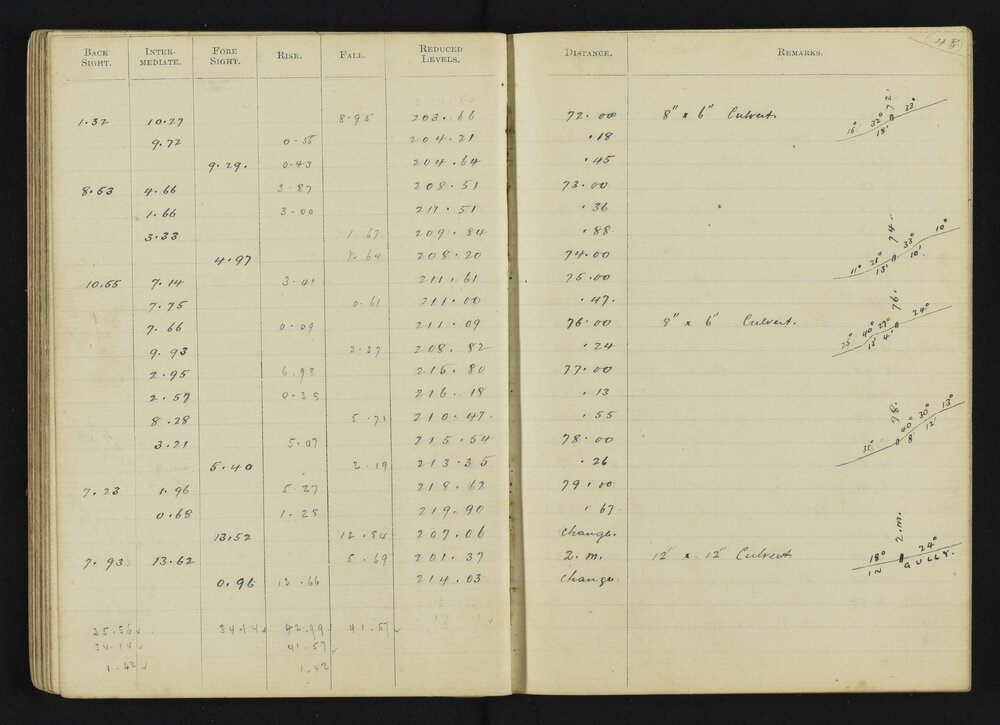 BACK SIGHT. INTER-MEDIATE. FORE SIGHT. RISE. FALL. REDUCED LEVELS. DISTANCE. REMARKS. 48
1.32 10.27 8.95 203.66 72.00 8" x 6" Culvert.
9.72 0.55 204.21 .18
9.29. 0.43 204.64 .45
8.53 4.66 3.87 208.51 73.00
1.66 3.00 211.51 .36
3.33 1.67 209.84 .88
4.97 1.64 208.20 74.00
10.55 7.14 3.41 211.61 75.00
7.75 0.61 211.00 .47.
7.66 0.09 211.09 76.00 8" x 6" Culvert.
9.93 2.27 208.82 .24
2.95 6.98 215.80 77.00
2.57 0.38 216.18 .13
8.28 5.71 210.47. .55
3.21 5.07 215.54 78.00
5.40 2.19 213.35 .26
7.23 1.96 5.27 218.62 79.00
0.68 1.28 219.90 .67
13.52 12.84 207.06 change.
7.93 13.62 5.69 201.37 2.m. 12" x 12" Culvert
0.96 12.66 214.03 change
35.56 34.14 42.99 41.57
34.14 41.57
1.42 1.42
72.
15° 32° 33°
18'
74.
11° 21° 33° 10°
13' 10'
76.
40° 29° 24°
13' 4'
78.
31° 40° 30° 13°
8' 12'
2.m.
18° 24°
IN GULLY.